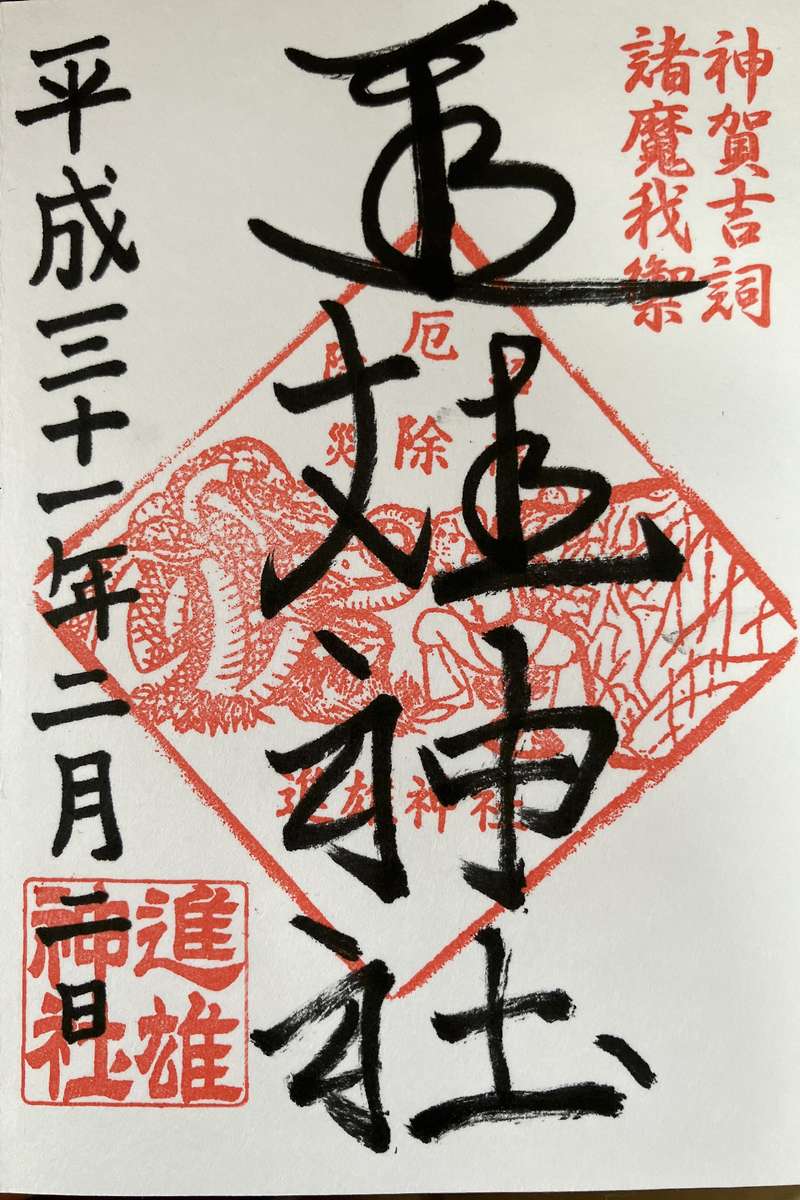 神賀吉詞
諸魔我禦
進雄神社
厄除
進雄神社
平成三十一年二月二日
進雄
神社